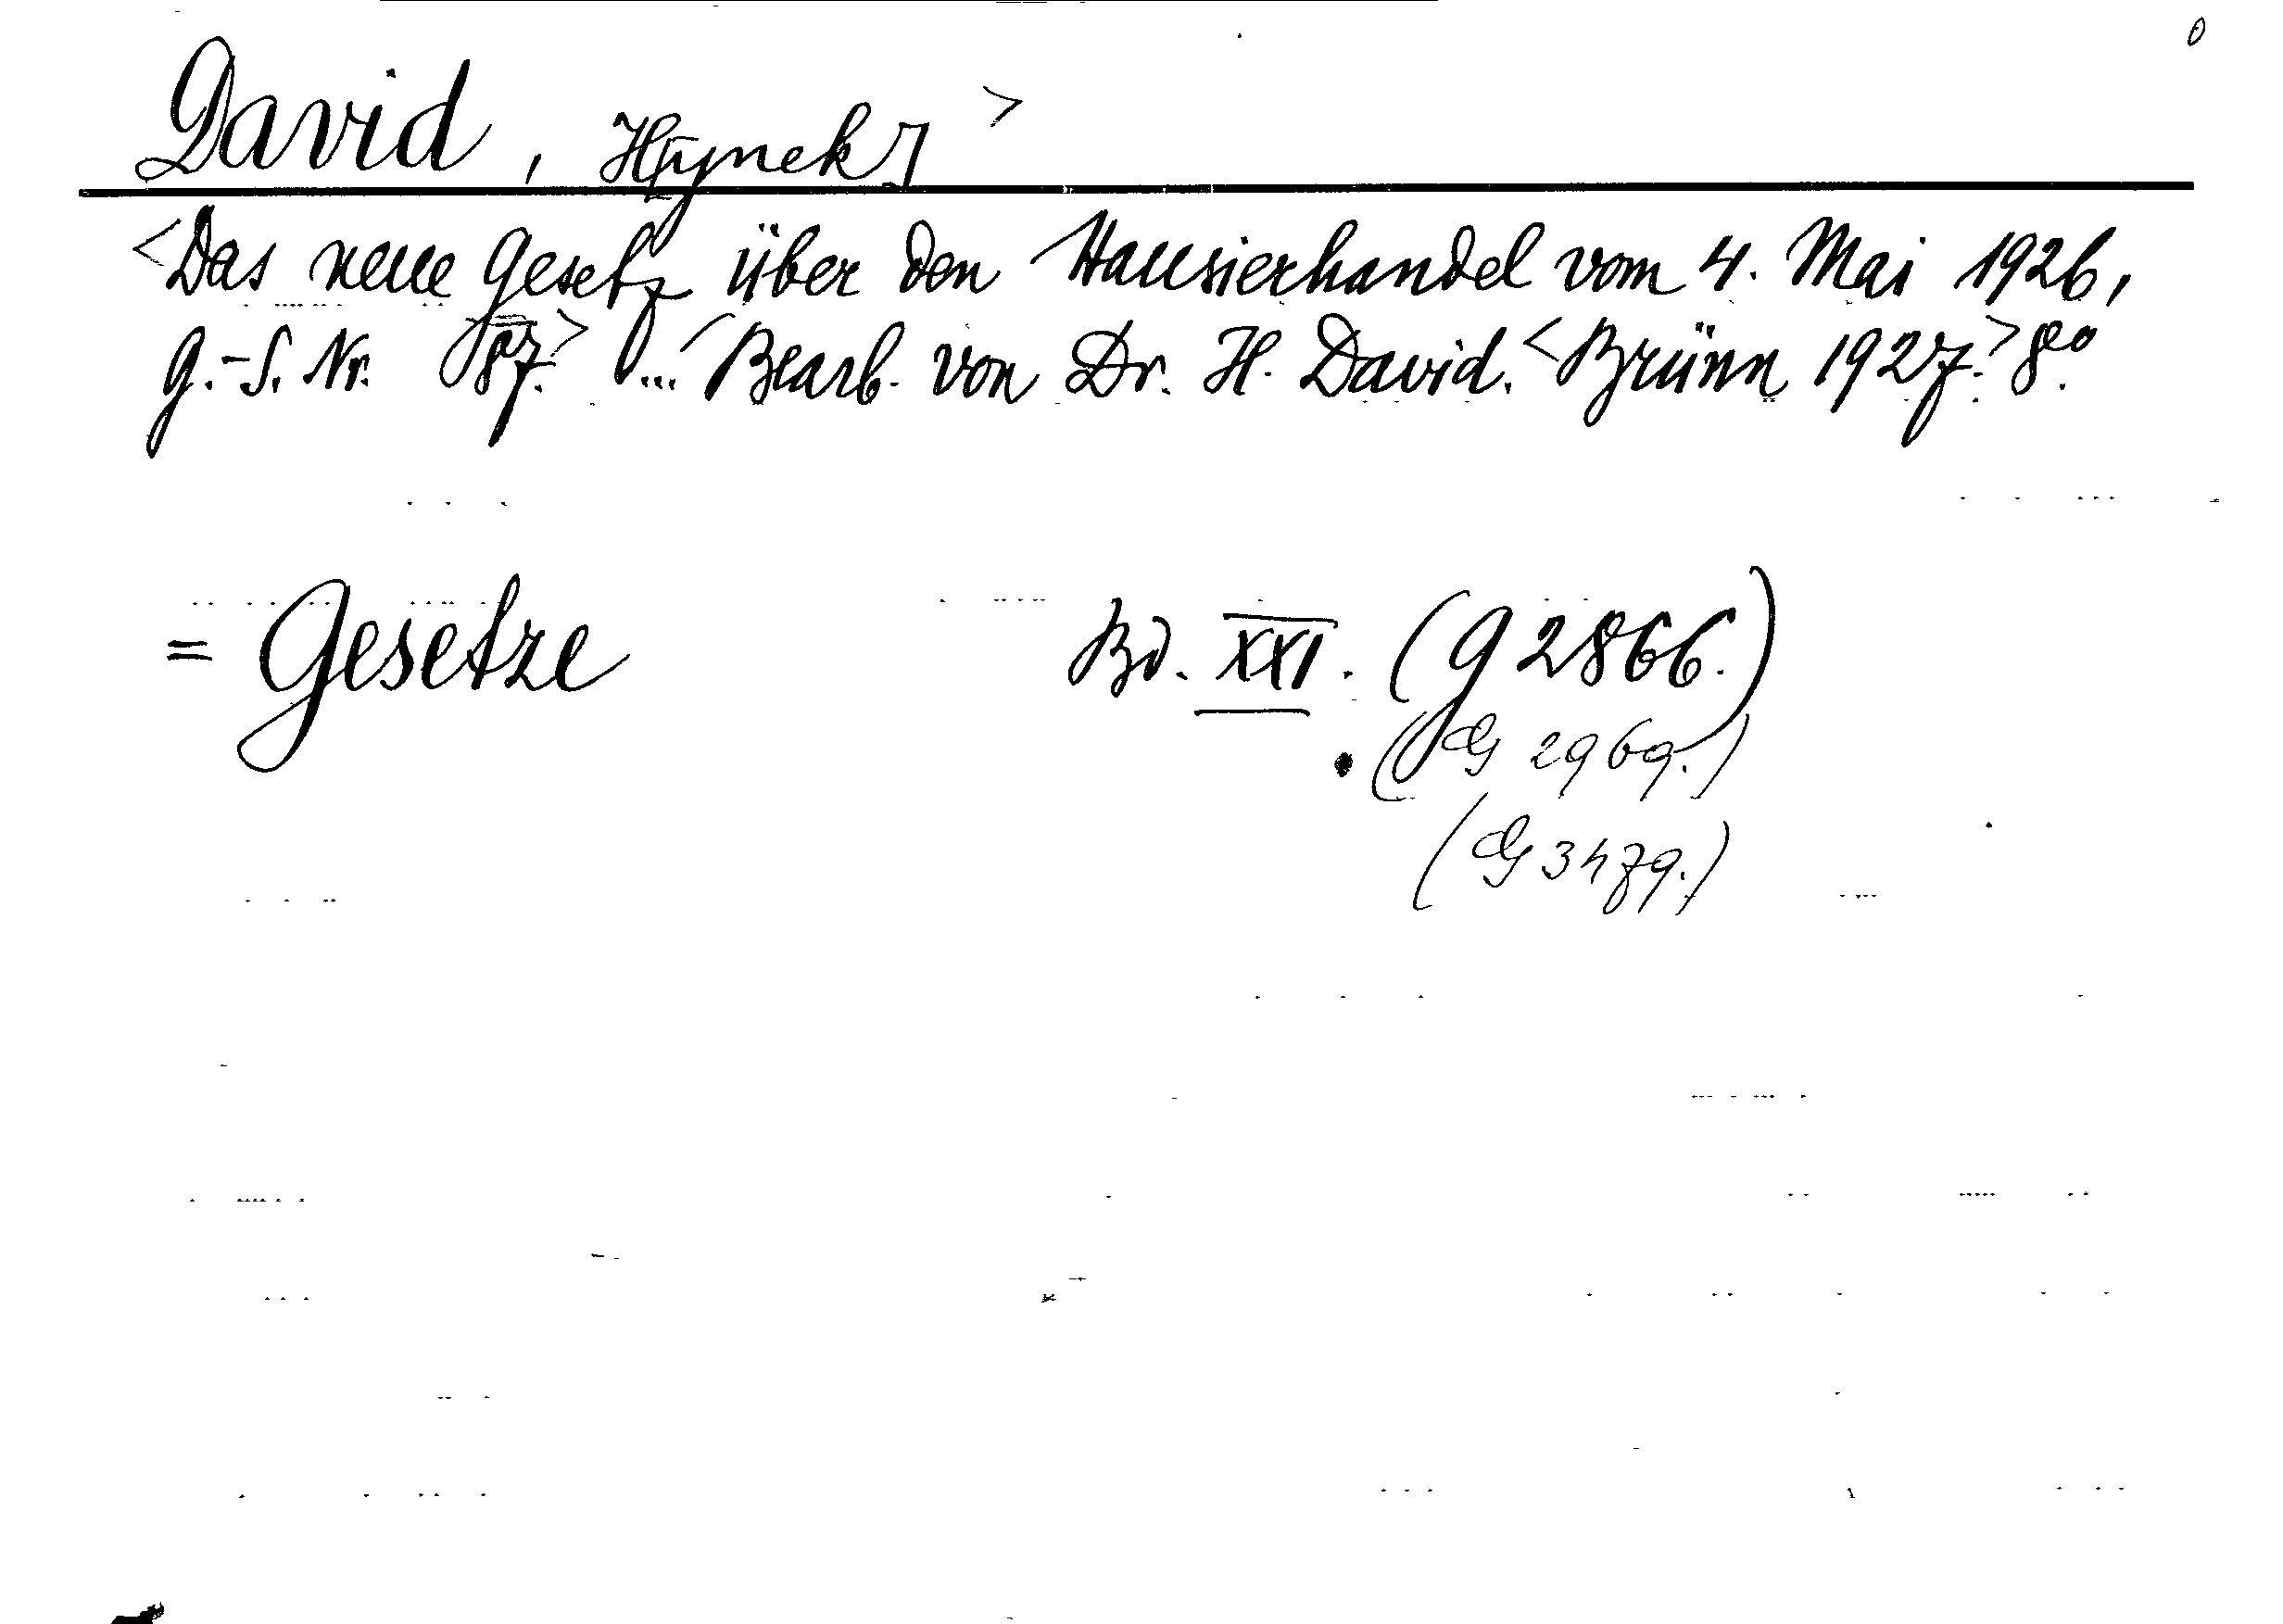 David, H[ynek]>
<Das neue Gesetz über den Hausierhandel vom 4. Mai 1926,
G.-S. Nr. 87.> ... Bearb. von Dr. H. David. <Brünn 1927.> 8°.
= Gesetze Bd. XXI. (G 2866.)
(G 2969.)
(G 3479.)